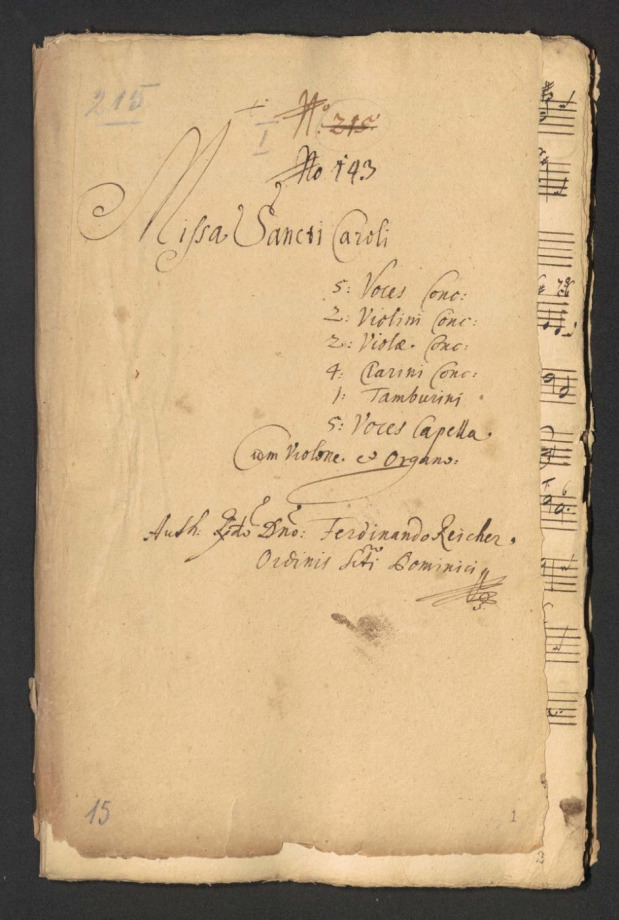 215
No 215
I
No 143
Missa Sancti Caroli
5: Voces Conc:
2: Violini Conc:
2: Violæ. Conc:
4: Clarini Conc:
1: Tamburini
5: Voces Capella.
Cum Violone. et Organo:
Auth: Rdo Dno: Ferdinando Reicher.
Ordinis Scti Dominici
15
1
2